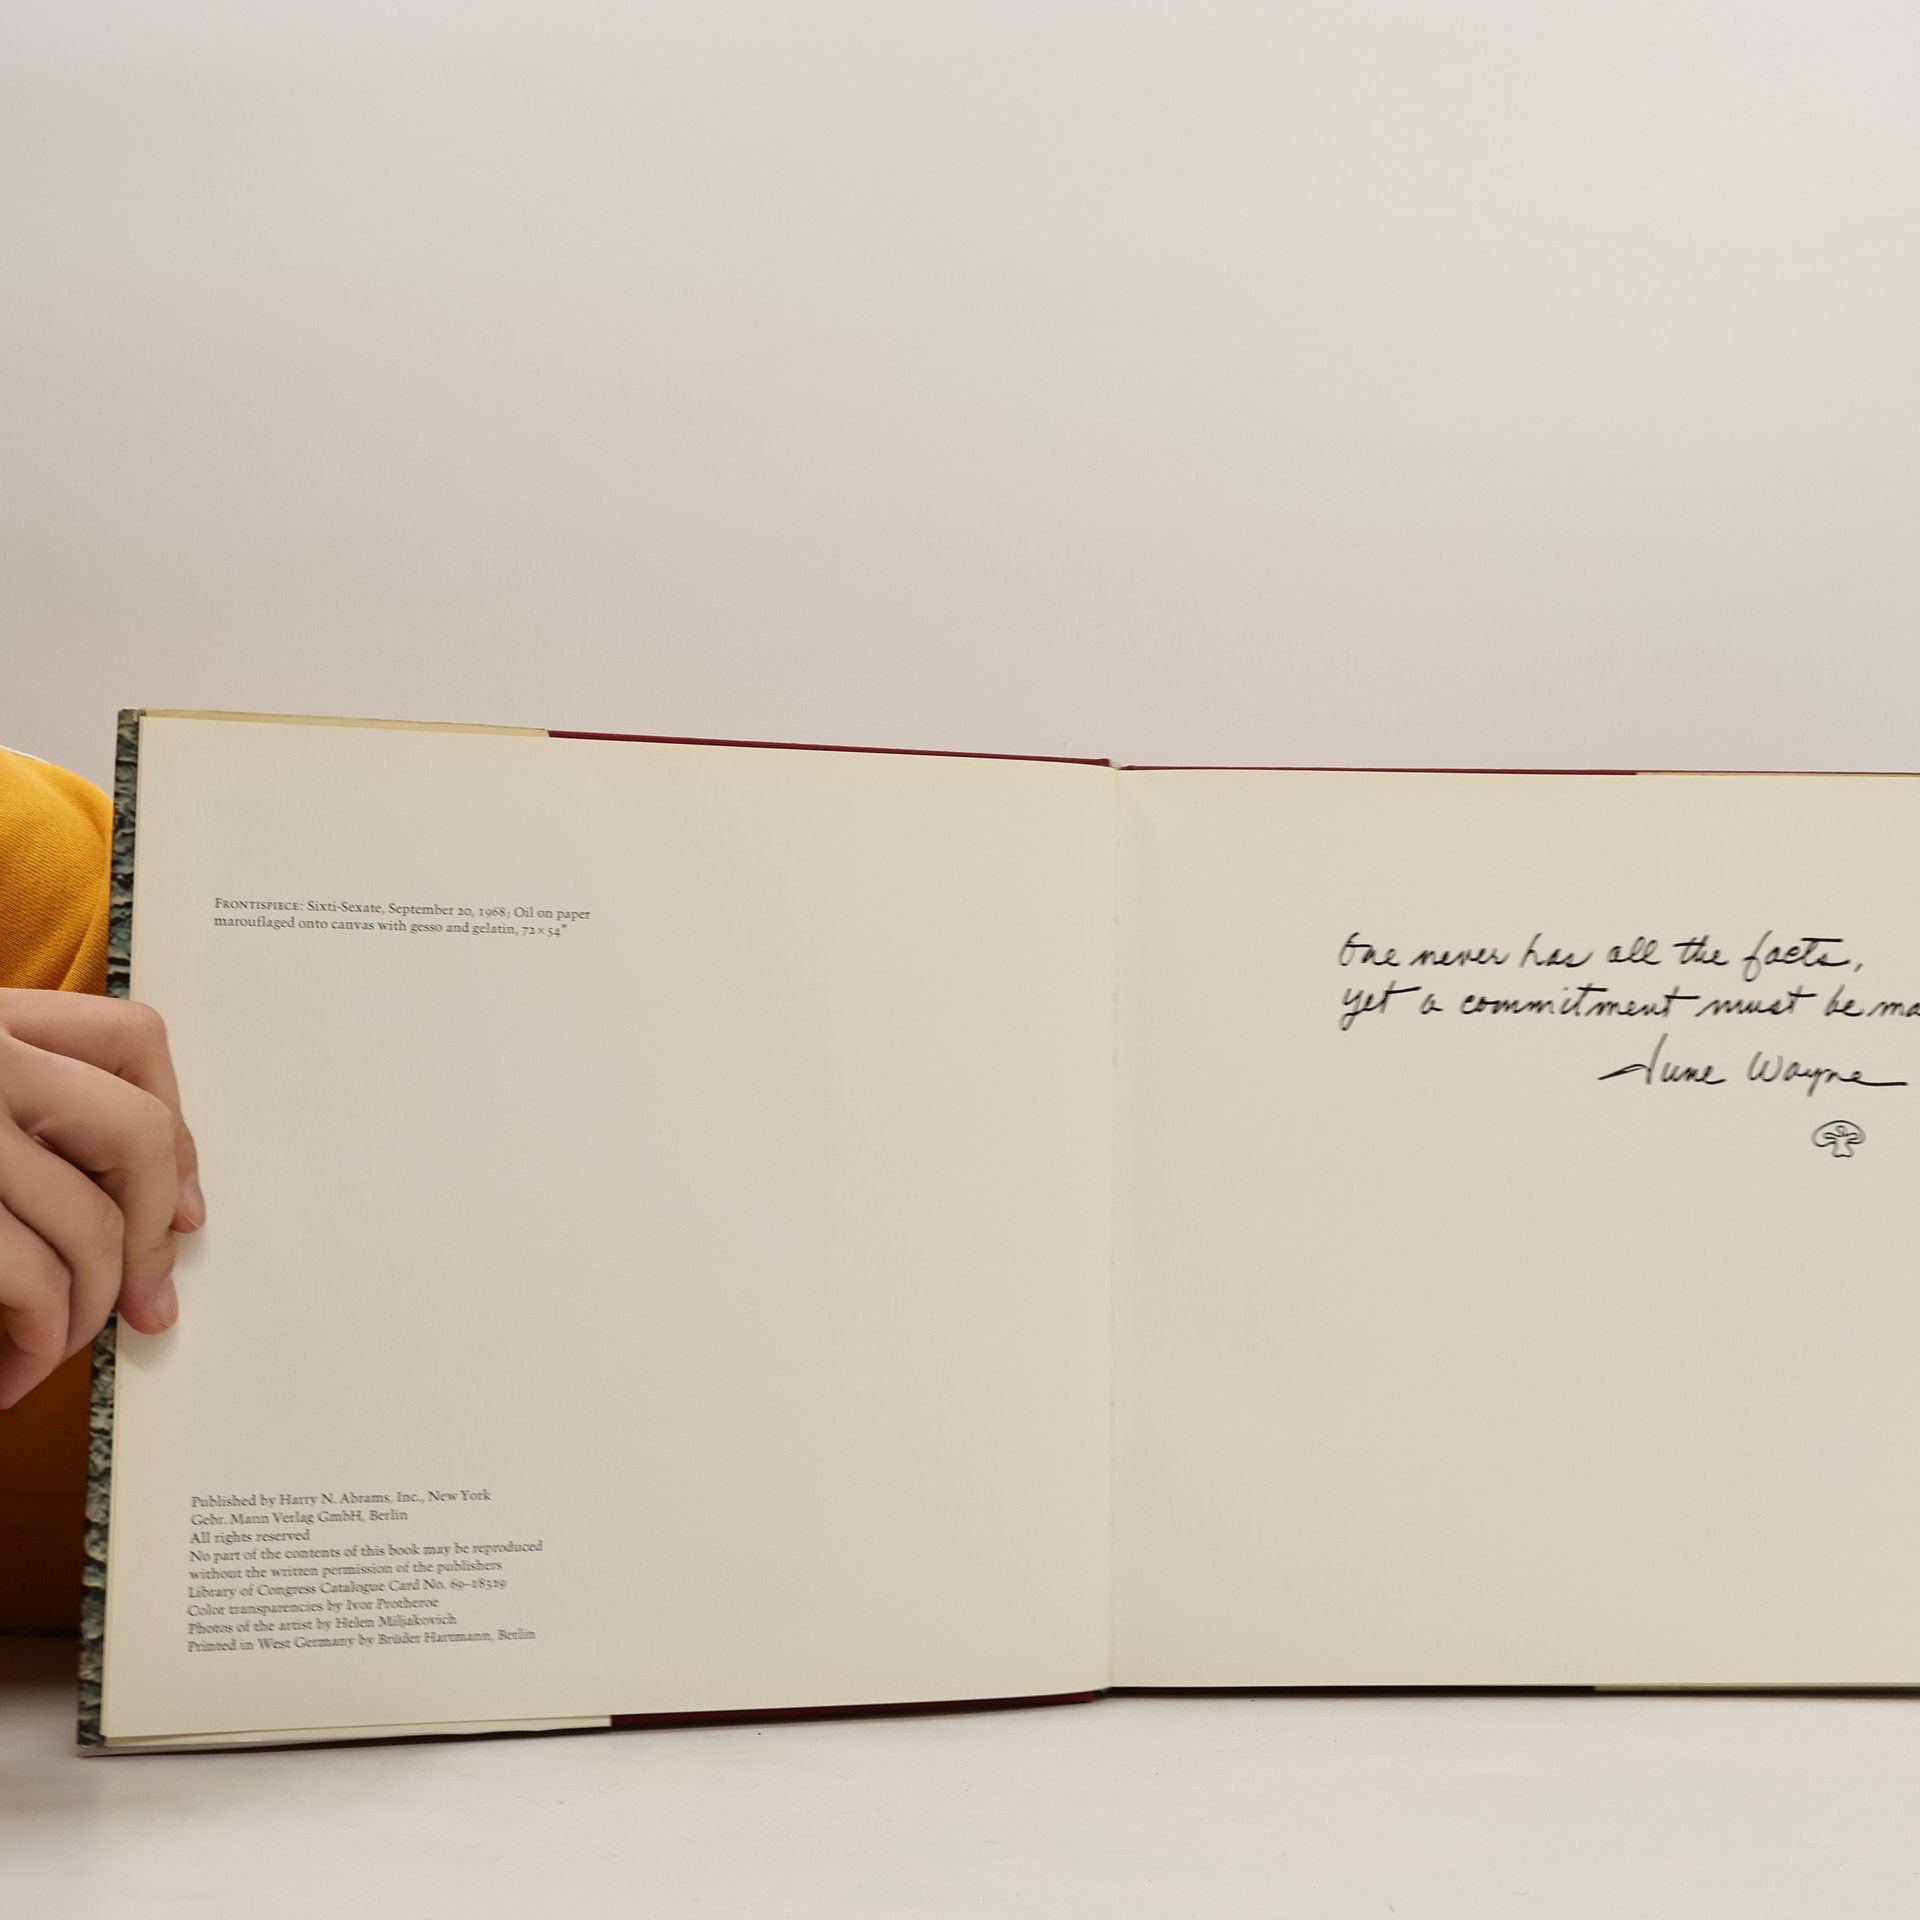 FRONTISPIECE: Sixti-Sexate, September 20, 1968; Oil on paper
marouflaged onto canvas with gesso and gelatin, 72 × 54″
One never has all the facts,
yet a commitment must be ma
June Wayne
Published by Harry N. Abrams, Inc., New York
Gebr. Mann Verlag GmbH, Berlin
All rights reserved
No part of the contents of this book may be reproduced
without the written permission of the publishers
Library of Congress Catalogue Card No. 69–18329
Color transparencies by Ivor Protheroe
Photos of the artist by Helen Miljakovich
Printed in West Germany by Brüder Hartmann, Berlin